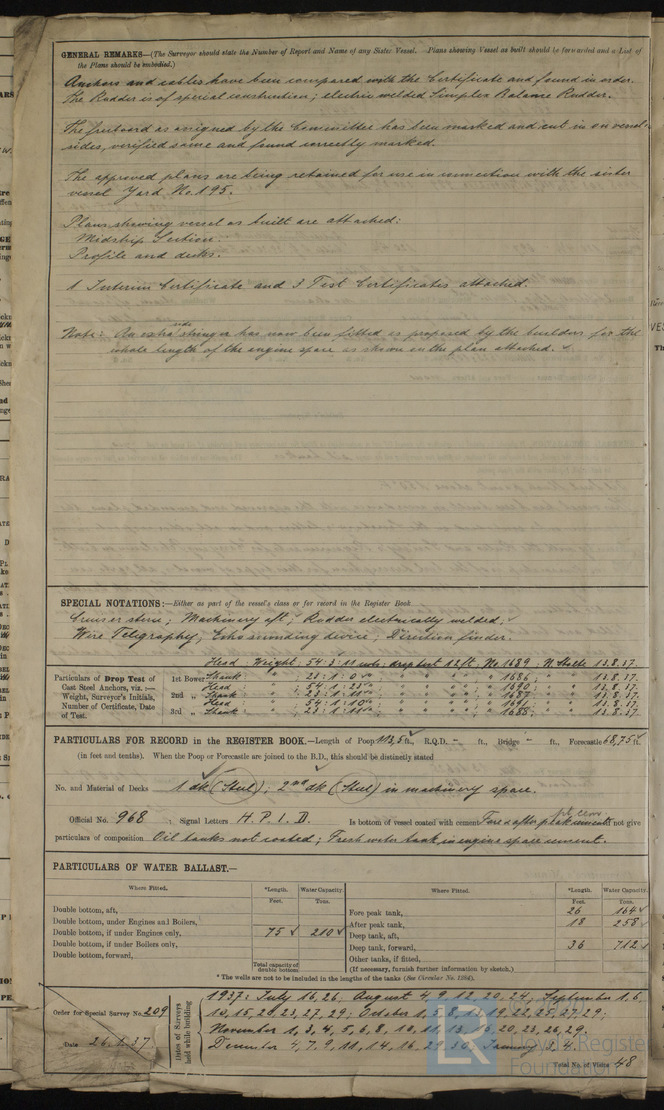 GENERAL REMARKS—(The Surveyor should state the Number of Report and Name of any Sister Vessel. Plans showing Vessel as built should be forwarded and a List of
the Plans should be embodied.)
Anchors and cables have been compared with the Certificate and found in order.
The Rudder is of special construction; electric welded Simplex Balance Rudder.
The freeboard as assigned by the Committee has been marked and cut in on vessel
sides, verified same and found correctly marked.
The approved plans are being retained for use in connection with the sister
vessel Yard No. 195.
Plans showing vessel as built are attached:
Midship Section.
Profile and decks.
1 Interim Certificate and 3 Test Certificates attached.
Note: An extra side stringer has now been fitted as proposed by the builders for the
whole length of the engine space as shown on the plan attached. ✓
SPECIAL NOTATIONS:—Either as part of the vessel's class or for record in the Register Book
Cruiser stern; Machinery aft; Rudder electrically welded;
Wire Telegraphy, Echo sounding device, Direction finder.
Particulars of Drop Test of
Cast Steel Anchors, viz.:—
Weight, Surveyor's Initials,
Number of Certificate, Date
of Test.
Head: Weight: 54:3:11 drop test 12 ft. No. 1689 13.8.37.
1st Bower Shank " 1686 " 13.8.37.
Head " 1690 " 13.8.37.
2nd " Shank " 1687 " 13.8.37.
Head 54:1:10 " 1691 13.8.37.
3rd " Shank " 1688 " 13.8.37.
PARTICULARS FOR RECORD in the REGISTER BOOK.—Length of Poop 113,5 ft., R.Q.D. " ft., Bridge " ft., Forecastle 68,75 ft.
(in feet and tenths). When the Poop or Forecastle are joined to the B.D., this should be distinctly stated
No. and Material of Decks 1 dk (Steel); 2nd dk (Steel) in machinery space.
Official No. 968 ; Signal Letters H.P.I.D. Is bottom of vessel coated with cement Fore & after peak cement not give
particulars of composition Oil tanks not coated; Fresh water tank in engine space cement.
PARTICULARS OF WATER BALLAST.—
Where Fitted. *Length. Water Capacity. Where Fitted. *Length. Water Capacity.
Feet. Tons. Feet. Tons.
Double bottom, aft, Fore peak tank, 26 164 ✓
Double bottom, under Engines and Boilers, After peak tank, 18 258 ✓
Double bottom, if under Engines only, 75 ✓ 210 ✓ Deep tank, aft,
Double bottom, if under Boilers only, Deep tank, forward, 36 712
Double bottom, forward, Other tanks, if fitted,
Total capacity of double bottom (If necessary, furnish further information by sketch.)
* The wells are not to be included in the lengths of the tanks (See Circular No. 1284).
Order for Special Survey No. 209
Date 26.1.37.
Dates of Surveys held while building
1937: July 16, 26, August 4, 9, 12, 20, 24, September 1, 6,
10, 15, 20, 23, 27, 29; October 1, 5, 8, 22, 25, 27, 29;
November 1, 3, 4, 5, 6, 8, 10, 11, 13, 20, 23, 26, 29.
December 4, 7, 9, 11, 14, 16, 29, 30, January 3, 4.
Total No. of Visits 48
LR
Lloyd's Register
Foundation